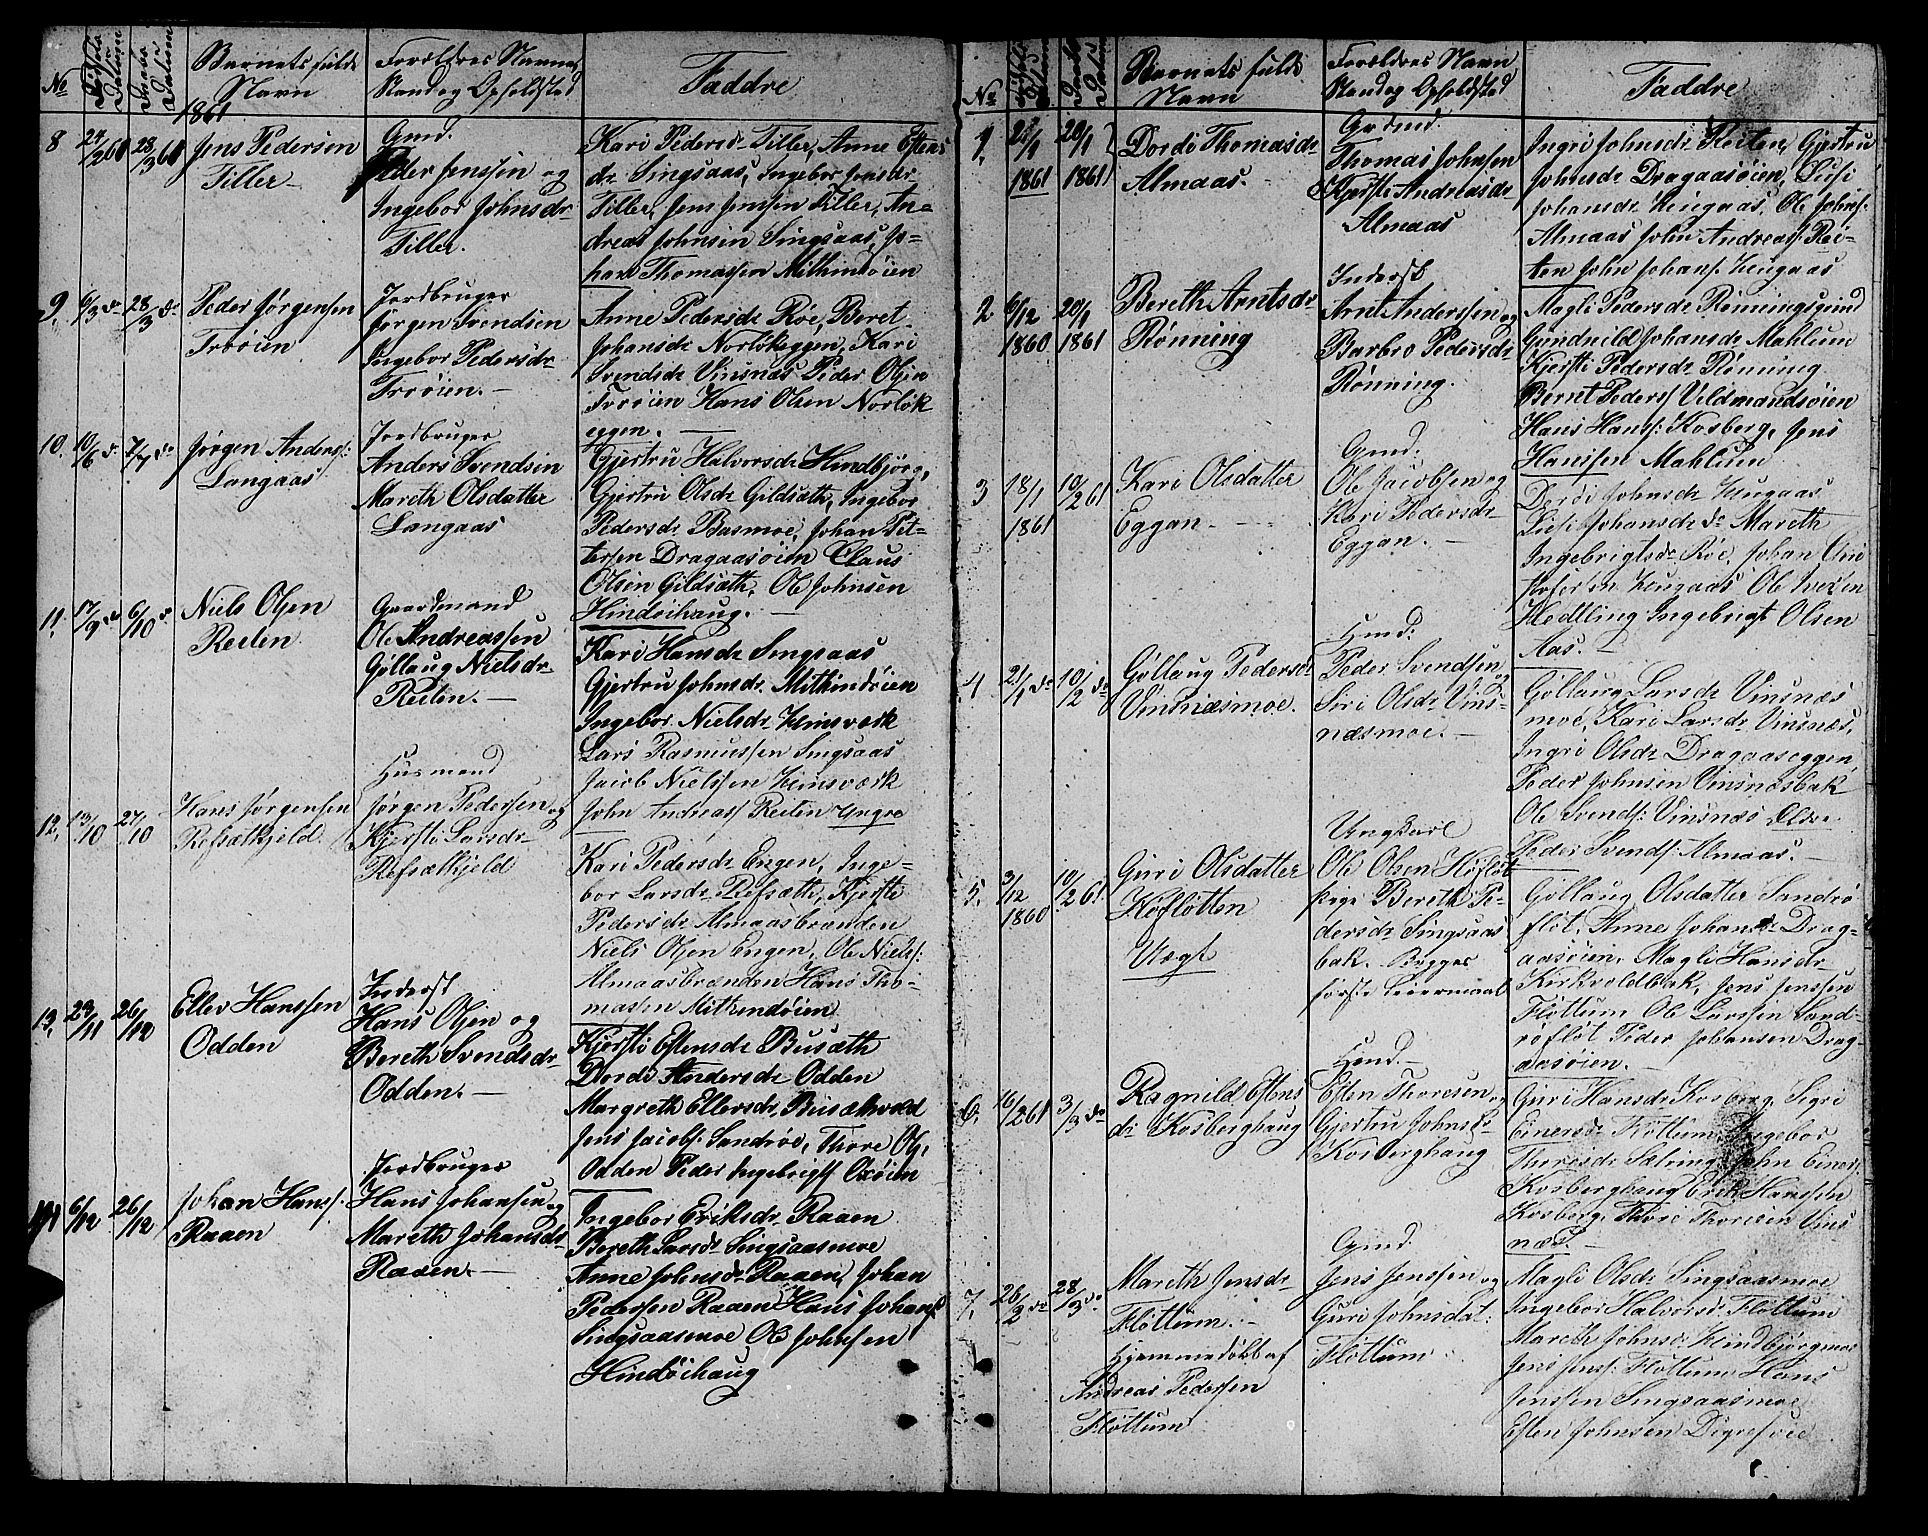 No
Fødsels Datum
Daabs Datum
Barnets fulde
Navn
Forældres Navne,
Stand og Opholdsted
Faddre
1861
8 24/2 61 28/3 61
Jens Pedersen
Tiller
Gmd.
Peder Jenssen og
Ingebor Johnsdr
Tiller.
Kari Pedersdr Tiller, Anne Estens
dr Singsaas, Ingebor Jensdr
Tiller, Jens Jenssen Tiller, An=
dreas Johnsen Singsaas, Jo=
han Thomassen Mitkindøien
9. 6/3 do 28/3 do
Peder Jørgensen
Trøøien
Jordbruger
Jørgen Svendsen
Ingebor Pedersdr
Trøøien.
Anne Pedersdr Roe, Beret
Johansdr Norløkeggen, Kari
Svendsdr Vinsnæs Peder Olsen
Trøøien Hans Olsen Norløk
eggen.
10. 10/6 d. 7/7 do
Jørgen Anders:
Langaas
Jordbruger
Anders Svendsen
Mareth Olsdatter
Langaas
Gjertru Halvorsdr Hindbjørg,
Gjertru Olsdr Gildsæth, Ingebor
Pedersdr Basmoe, Johan Pet-
tersen Dragaasøien Claus
Olsen Gildsæth, Ole Johnsen
Hindøihaug.
11. 17/9 do 6/10 do
Niels Olsen
Reiten
Gaardmand
Ole Andreassen
Gøllaug Nielsdr
Reiten.
Kari Hansdr Singsaas
Gjertru Johnsdr Mitkindøien
Ingebor Nielsdr Heimsværk
Lars Rasmussen Singsaas
Jacob Nielssen Heimsværk
John Andreass Reiten Yngre
12. 13/10 27/10
Hans Jørgensen
Refsætkjeld
Husmand
Jørgen Pedersen og
Kjersti Larsdr
Refsætkjeld
Kari Pedersdr Engen, Inge-
bor Larsdr Refsæth, Kjersti
Pedersdr Almaasbrænden
Niels Olsen Engen, Ole Niels:
Almaasbrænden Hans Tho-
masen Mitkindøien
13. 23/11 26/12
Eller Hanssen
Odden
Inderst
Hans Olsen og
Bereth Svendsdr
Odden.
Kjersti Estensdr Busæth
Dordi Andersdr Odden
Margreth Ellersdr Busæhvæd
Jens Jacobs: Sandrøe, Thore Ols,
Odden Peder Ingebrigts Oxøien
14 6/12 26/12
Johan Hanss.
Raaen
Jordbruger
Hans Johansen og
Mareth Johansdr
Raaen.
Ingebor Eriksdr Raaen
Bereth Larsdr Singsaasmoe
Anne Johnsdr Raaen, Johan
Pedersen Raaen Hans Johans
Singsaasmoe Ole Johnsen
Hindøihaug
No
Barnets fulde
Navn
Forældres Navn
Stand og Opholdsted
Faddre
1.
1861 20/1 1861
Dordi Thomasdr
Almaas.
Grdmd.
Thomas Johnsen
Kjersti Andreasdr
Almaas
Ingri Johnsdr Reiten, Gjertru
Johnsdr Dragaasøien, Lusi
Johansdr Haugaas, Ole Johns:
Almaas John Andreass: Rei-
ten John Johans: Haugaas
2 6/12 1860 20/1 1861
Bereth Arntsdr
Rønning
Inderst
Arnt Anderssen og
Barbro Pedersdr
Rønning.
Magli Pedersdr Rønningsgrind
Gundnild Johansdr Mahlum
Kjersti Pedersdr Rønning
Bernt Peders Vildmandsøien
Hans Hans: Kosberg, Jens
Hansen Mahlum
3 18/1 1861 10/2 61
Kari Olsdatter
Eggan.
Gmd.
Ole Jacobsen og
Kari Pedersdr
Eggan.
Dordi Johnsdr Haugaas
Lisi Johansdr do Mareth
Ingebrigtsdr Roe, Johan
Haugaas Ole Iversen
Hedtling Ingebrigt Olsen
Aas.
4 21/1 do 10/2 do
Gøllaug Pedersdr
Vinsnæsmoe.
Hmd:
Peder Svendsen og
Siri Olsdr Vins-
næsmoe.
Gøllaug Larsdr Vinsnæs
moe, Kari Larsdr Vinsnæs,
Ingri Olsdr Dragaaseggen,
Peder Johnsen Vinsnæsbak
Ole Svends: Vinsnæs Eldre.
Peder Svends: Almaas.
5. 3/12 1860 10/2 61
Guri Olsdatter
Høfløtten
Uægt
Ungkarl
Ole Olsen Høfløt
pige Bereth Pe-
dersdr Singsaas
bak. Begges
første Leiermaal
Gøllaug Olsdatter Sandrø
fløt, Anne Johansdr Drag=
aasøien, Magli Hansdr
Kirkvoldbak, Jens Jenssen
Fløttum Ole Larssen Sand-
røfløt Peder Johansen Drag-
aasøien.
6. 16/2 61 3/3 do
Ragnild Estens
dr Kosberghaug
Hmd.
Esten Thoresen og
Gjertru Johnsdr
Kosberghaug
Guri Hansdr Kosberg, Sigri
Einersdr Fløttum, Ingebor
Thoresdr Sætring, John Einers:
Kosberghaug Erik Hanssen
Kosberg, Thore Thoresen Vins
næs.
7. 26/2 do 28/3 do
Mareth Jensdr
Fløttum.
Hjemmedøbt af
Andreas Pedersen
Fløttum
Gmd.
Jens Jenssen og
Guri Johnsdat:
Fløttum
Magli Olsdr Singsaasmoe
Ingebor Halvorsdr Fløttum
Mareth Johnsdr Hindbjørgmoe
Jens Jens: Fløttum Hans
Jenssen Singsaasmoe
Esten Johnsen Digresvie